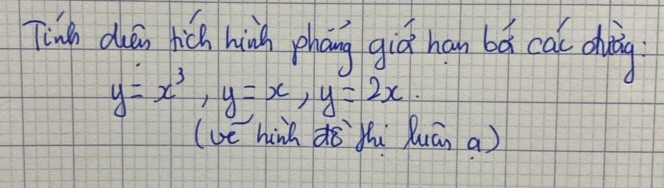 Tính diện tích hình phẳng giới hạn bởi các đường:
y = x³, y = x, y = 2x.
(vẽ hình đồ thị luôn ạ)